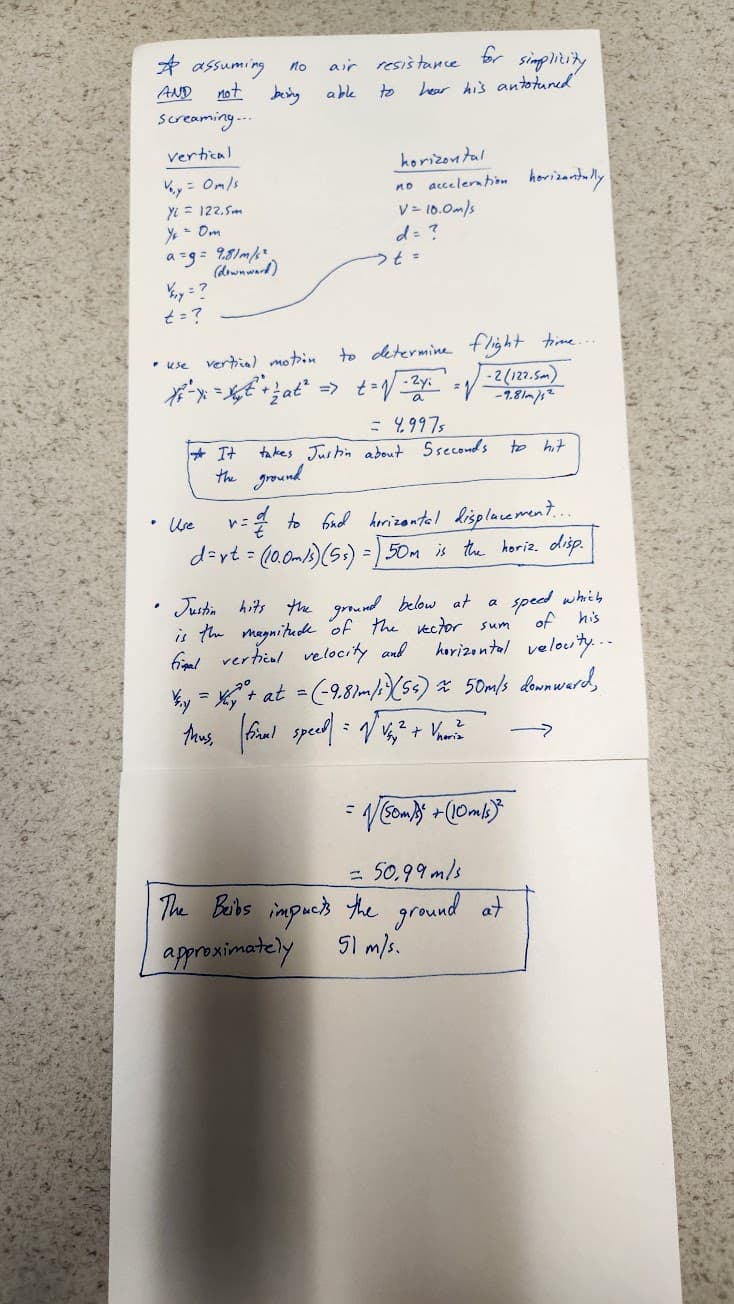 ☆ assuming no air resistance for simplicity
AND not being able to hear his autotuned
screaming...
vertical
V₀,y = 0m/s
yi = 122.5m
yf = 0m
a = g = 9.81m/s²
(downward)
Vf,y = ?
t = ?
horizontal
no acceleration horizontally
V = 10.0m/s
d = ?
t =
• use vertical motion to determine flight time...
yf⁰ - yi = V₀,yt⁰ + ½at² => t = √(-2yi/a) = √(-2(122.5m)/-9.81m/s²)
= 4.997s
☆ It takes Justin about 5 seconds to hit
the ground
• Use v = d/t to find horizontal displacement...
d = vt = (10.0m/s)(5s) = 50m is the horiz. disp.
• Justin hits the ground below at a speed which
is the magnitude of the vector sum of his
final vertical velocity and horizontal velocity...
Vf,y = V₀,y⁰ + at = (-9.81m/s²)(5s) ≈ 50m/s downward,
thus, |final speed| = √(Vf,y² + Vhoriz²) →
= √((50m/s)² + (10m/s)²)
= 50.99m/s
The Beibs impacts the ground at
approximately 51 m/s.